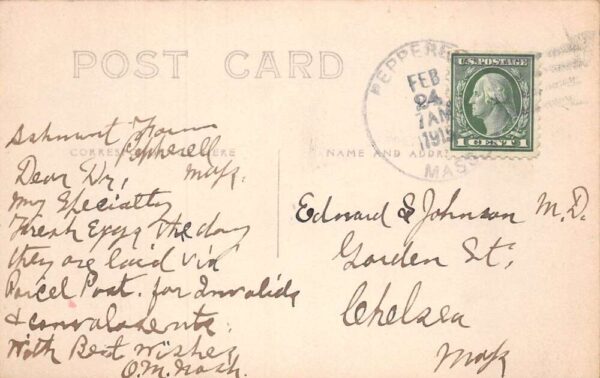 POST CARD
PEPPERE
FEB
24
7 AM
191
MASS
U.S. POSTAGE
1 CENT 1
CORRES HERE
NAME AND ADDRE
Farm
Pepperell
Mass.
Dear Dr,
My Specialty
Fresh Eggs the day
they are laid via
Parcel Post. for Invalids
& convalesents.
With Best wishes
O.M. Nash.
Edward S Johnson M.D.
Gorden St;
Chelsea
Mass